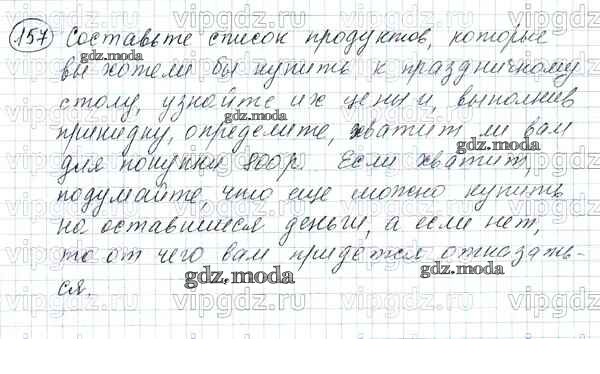 157 Составьте список продуктов, которые
вы хотели бы купить к праздничному
столу, узнайте их цены и, выполнив
прикидку, определите, хватит ли вам
для покупки 800р. Если хватит,
подумайте, что ещё можно купить
на оставшиеся деньги, а если нет,
то от чего вам придётся отказать-
ся.
gdz.moda
gdz.moda
gdz.moda
gdz.moda
gdz.moda
vipgdz.ru